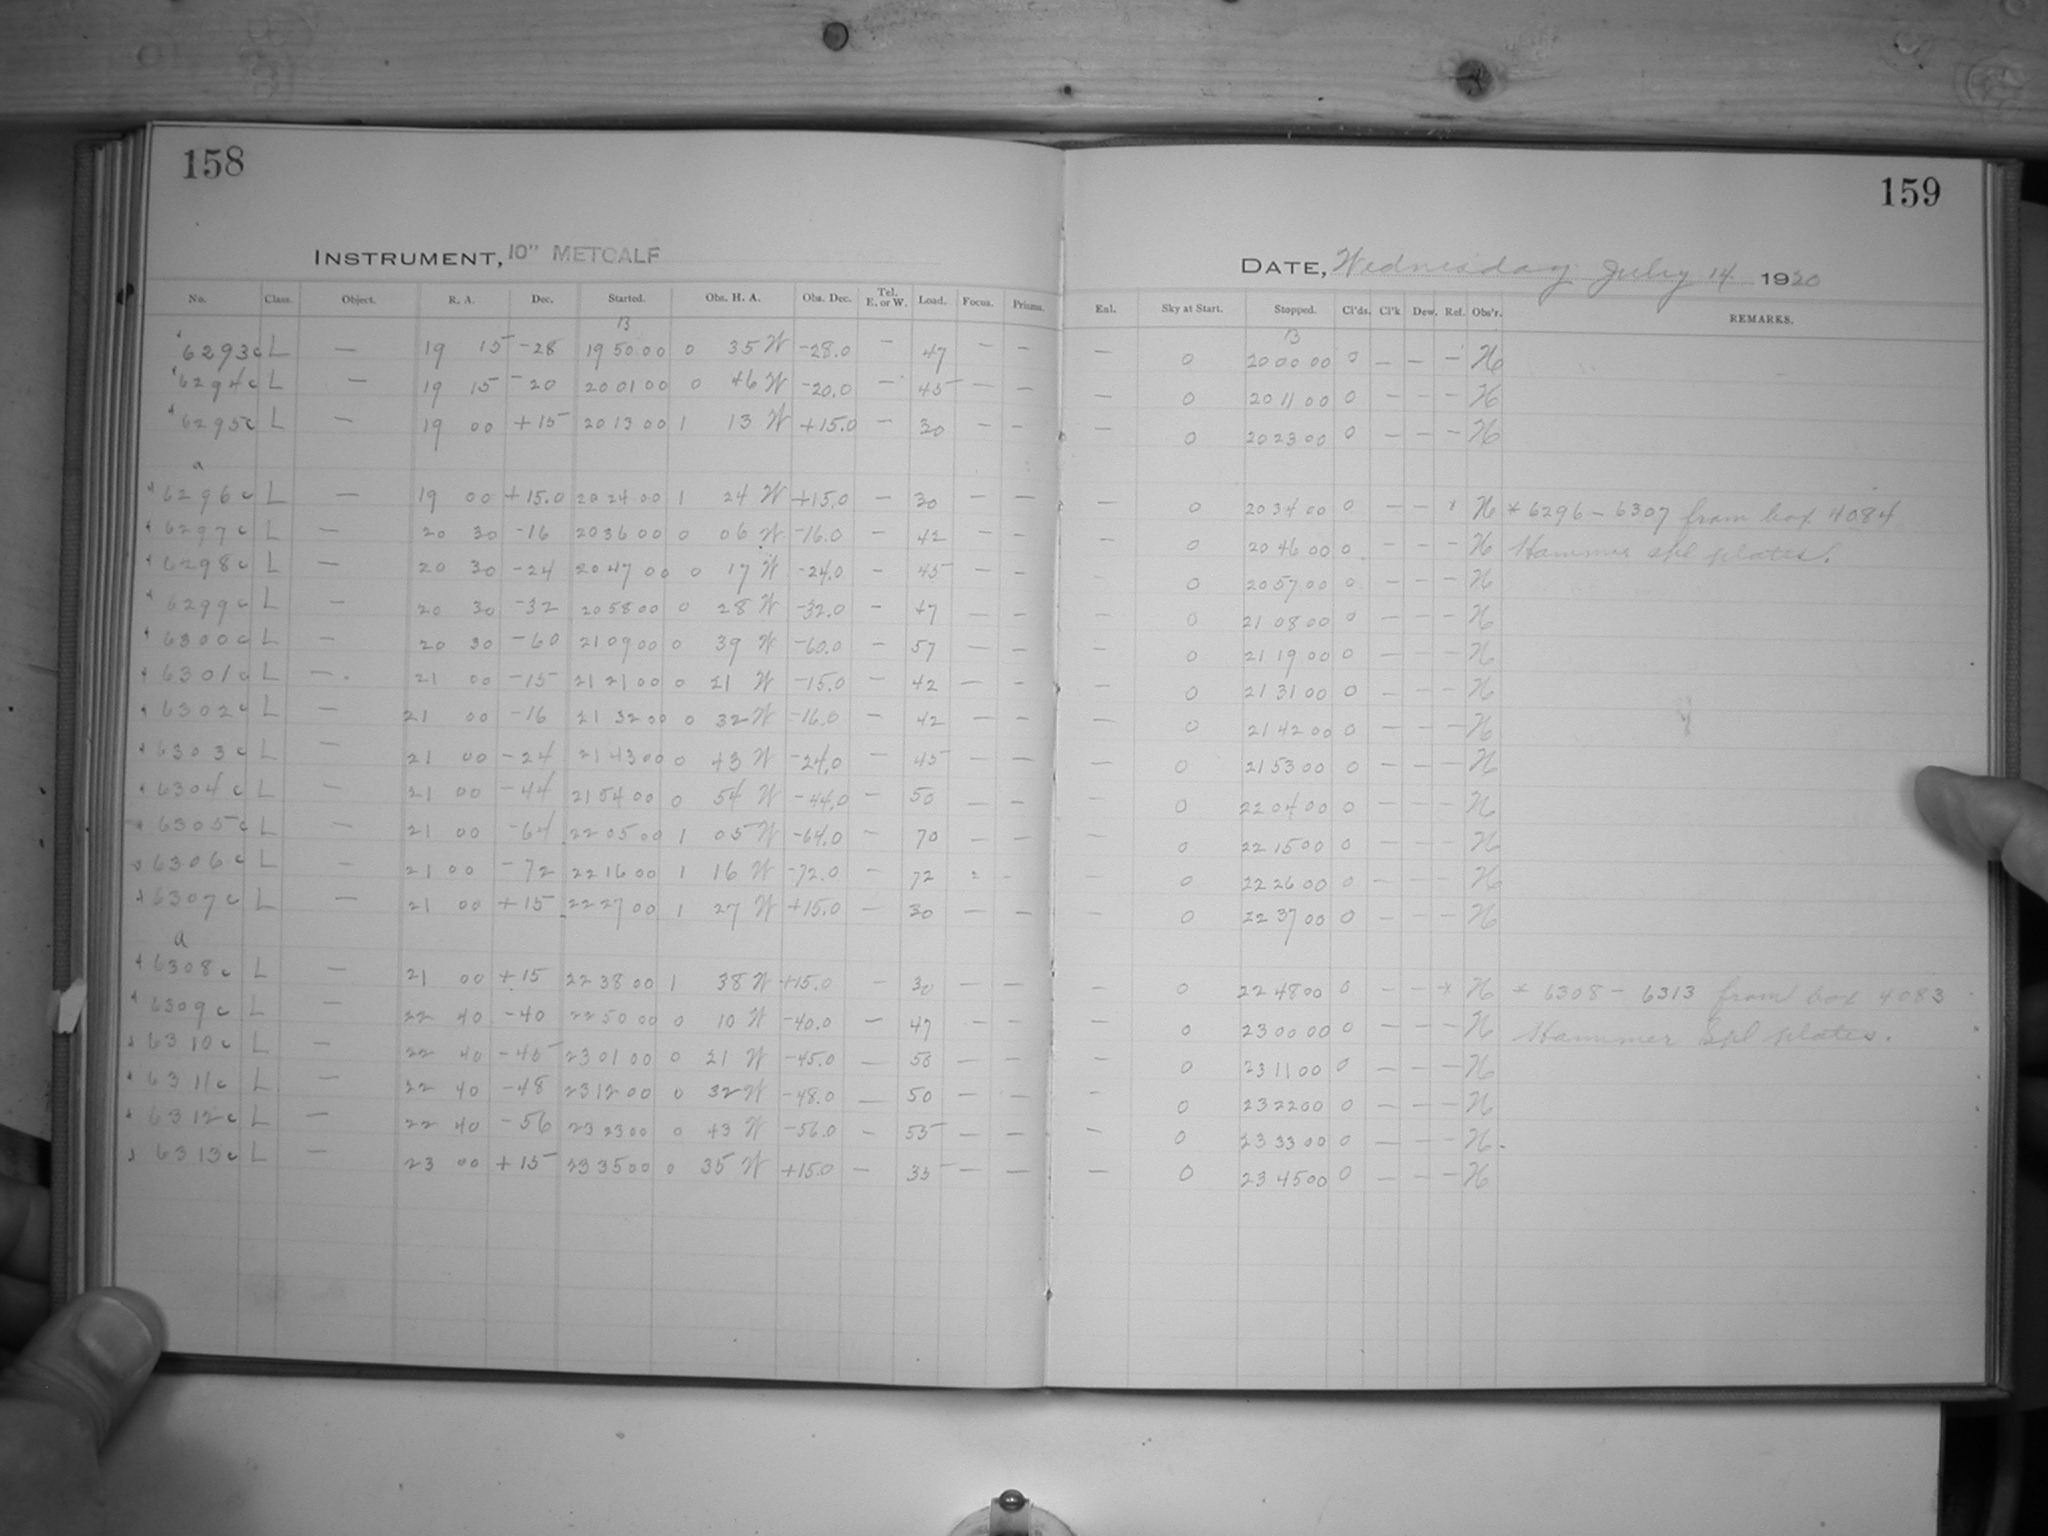 158
159
INSTRUMENT, 10" METCALF
DATE, Wednesday July 14 1920
No. Class. Object. R. A. Dec. Started. Obs. H. A. Obs. Dec. Tel. E. or W. Load. Focus. Prisms. Enl. Sky at Start. Stopped. Cl'ds. Cl'k Dew. Ref. Obs'r. REMARKS.
B B
6293c L — 19 15 -28 19 50 00 0 35 W -28.0 — 47 — — — 0 20 00 00 0 — — — H
6294c L — 19 15 -20 20 01 00 0 46 W -20.0 — 45 — — — 0 20 11 00 0 — — — H
6295c L — 19 00 +15 20 13 00 1 13 W +15.0 — 30 — — — 0 20 23 00 0 — — — H
a
6296c L — 19 00 +15.0 20 24 00 1 24 W +15.0 — 30 — — — 0 20 34 00 0 — — * H * 6296 - 6307 from box 4084
6297c L — 20 30 -16 20 36 00 0 06 W -16.0 — 42 — — — 0 20 46 00 0 — — — H Hammer spl plates.
6298c L — 20 30 -24 20 47 00 0 17 W -24.0 — 45 — — — 0 20 57 00 0 — — — H
6299c L — 20 30 -32 20 58 00 0 28 W -32.0 — 47 — — — 0 21 08 00 0 — — — H
6300c L — 20 30 -60 21 09 00 0 39 W -60.0 — 57 — — — 0 21 19 00 0 — — — H
6301c L — 21 00 -15 21 21 00 0 21 W -15.0 — 42 — — — 0 21 31 00 0 — — — H
6302c L — 21 00 -16 21 32 00 0 32 W -16.0 — 42 — — — 0 21 42 00 0 — — — H
6303c L — 21 00 -24 21 43 00 0 43 W -24.0 — 45 — — — 0 21 53 00 0 — — — H
6304c L — 21 00 -44 21 54 00 0 54 W -44.0 — 50 — — — 0 22 04 00 0 — — — H
6305c L — 21 00 -64 22 05 00 1 05 W -64.0 — 70 — — — 0 22 15 00 0 — — — H
6306c L — 21 00 -72 22 16 00 1 16 W -72.0 — 72 — — — 0 22 26 00 0 — — — H
6307c L — 21 00 +15 22 27 00 1 27 W +15.0 — 30 — — — 0 22 37 00 0 — — — H
a
6308c L — 21 00 +15 22 38 00 1 38 W +15.0 — 30 — — — 0 22 48 00 0 — — * H * 6308 - 6313 from box 4083
6309c L — 22 40 -40 22 50 00 0 10 W -40.0 — 47 — — — 0 23 00 00 0 — — — H Hammer Spl plates.
6310c L — 22 40 -45 23 01 00 0 21 W -45.0 — 50 — — — 0 23 11 00 0 — — — H
6311c L — 22 40 -48 23 12 00 0 32 W -48.0 — 50 — — — 0 23 22 00 0 — — — H
6312c L — 22 40 -56 23 23 00 0 43 W -56.0 — 55 — — — 0 23 33 00 0 — — — H
6313c L — 23 00 +15 23 35 00 0 35 W +15.0 — 35 — — — 0 23 45 00 0 — — — H